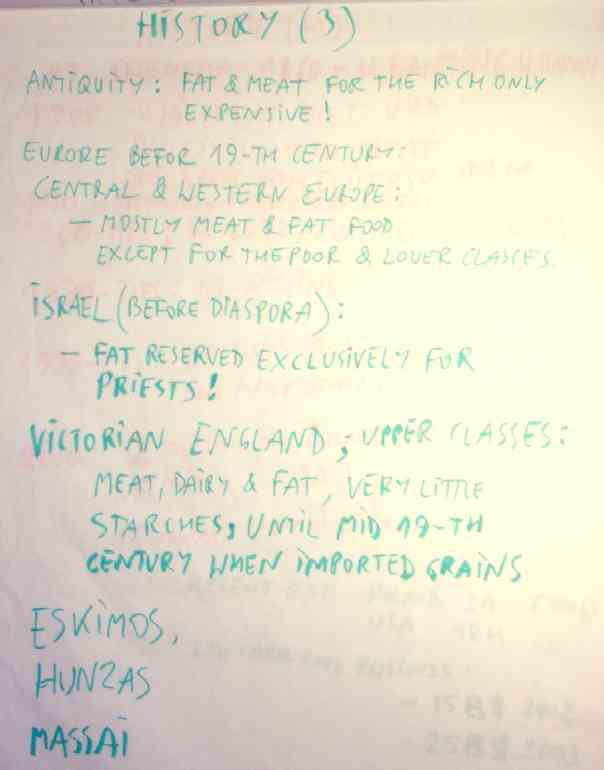 HISTORY (3)
ANTIQUITY: FAT & MEAT FOR THE RICH ONLY
EXPENSIVE!
EURORE BEFOR 19-TH CENTURY:
CENTRAL & WESTERN EUROPE:
- MOSTLY MEAT & FAT FOOD
EXCEPT FOR THE POOR & LOWER CLASSES.
ISRAEL (BEFORE DIASPORA):
- FAT RESERVED EXCLUSIVELY FOR
PRIESTS!
VICTORIAN ENGLAND; UPPER CLASSES:
MEAT, DAIRY & FAT, VERY LITTLE
STARCHES, UNTIL MID 19-TH
CENTURY WHEN IMPORTED GRAINS
ESKIMOS,
HUNZAS
MASSAI